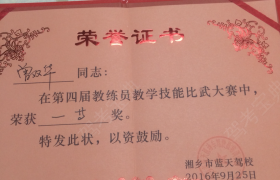 荣誉证书
曾双华 同志:
在第四届教练员教学技能比武大赛中,
荣获 一等 奖。
特发此状,以资鼓励。
湘乡市蓝天驾校
2016年9月25日